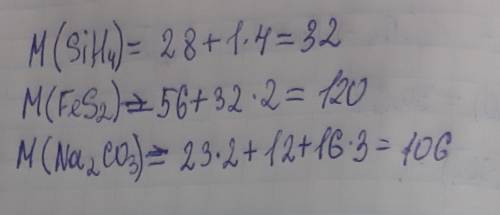 M(SiH₄) = 28 + 1·4 = 32
M(FeS₂) = 56 + 32·2 = 120
M(Na₂CO₃) = 23·2 + 12 + 16·3 = 106